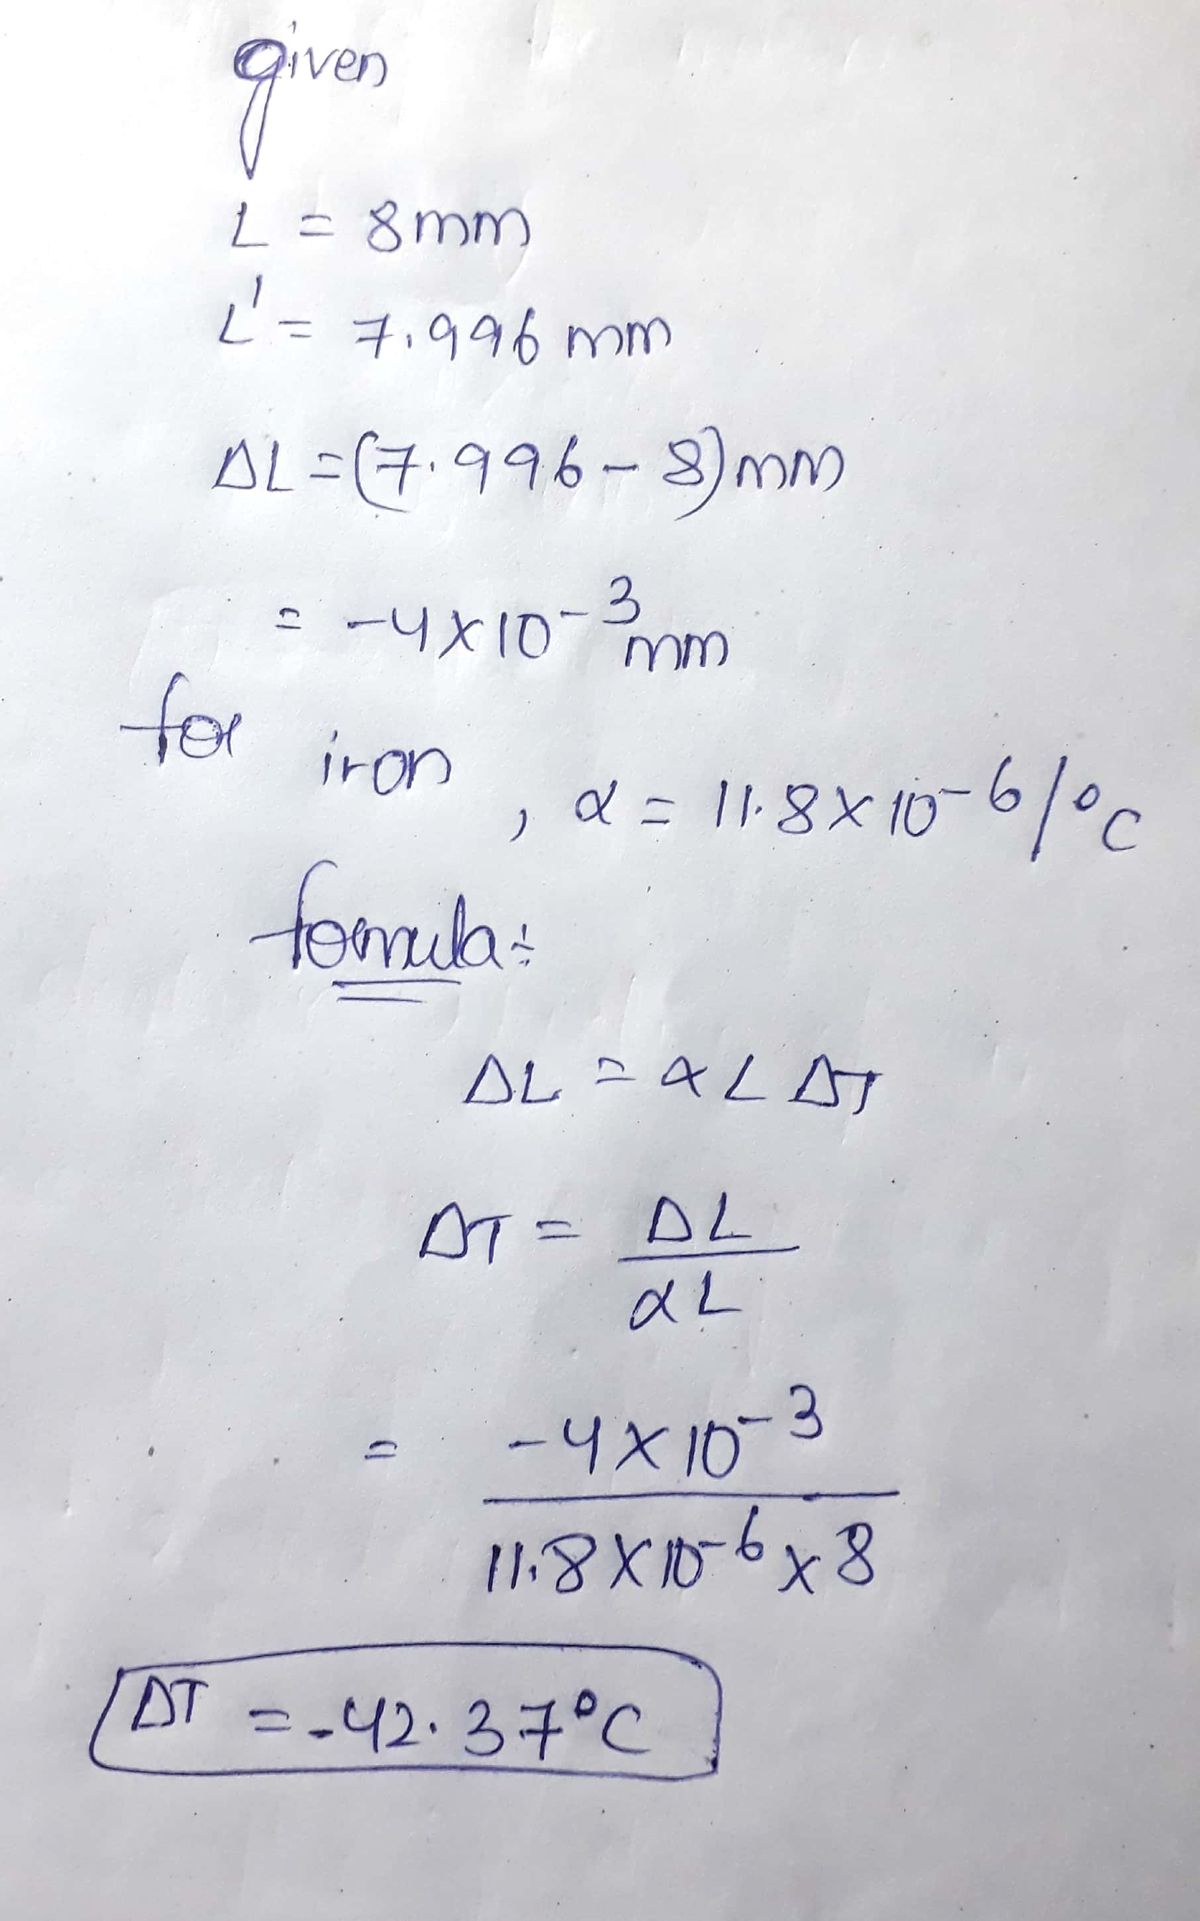 given
L = 8mm
L' = 7.996 mm
ΔL = (7.996 - 8) mm
= -4 × 10^-3 mm
for iron, α = 11.8 × 10^-6 /°C
formula:
ΔL = α L ΔT
ΔT = ΔL / αL
= -4 × 10^-3 / 11.8 × 10^-6 × 8
ΔT = -42.37°C